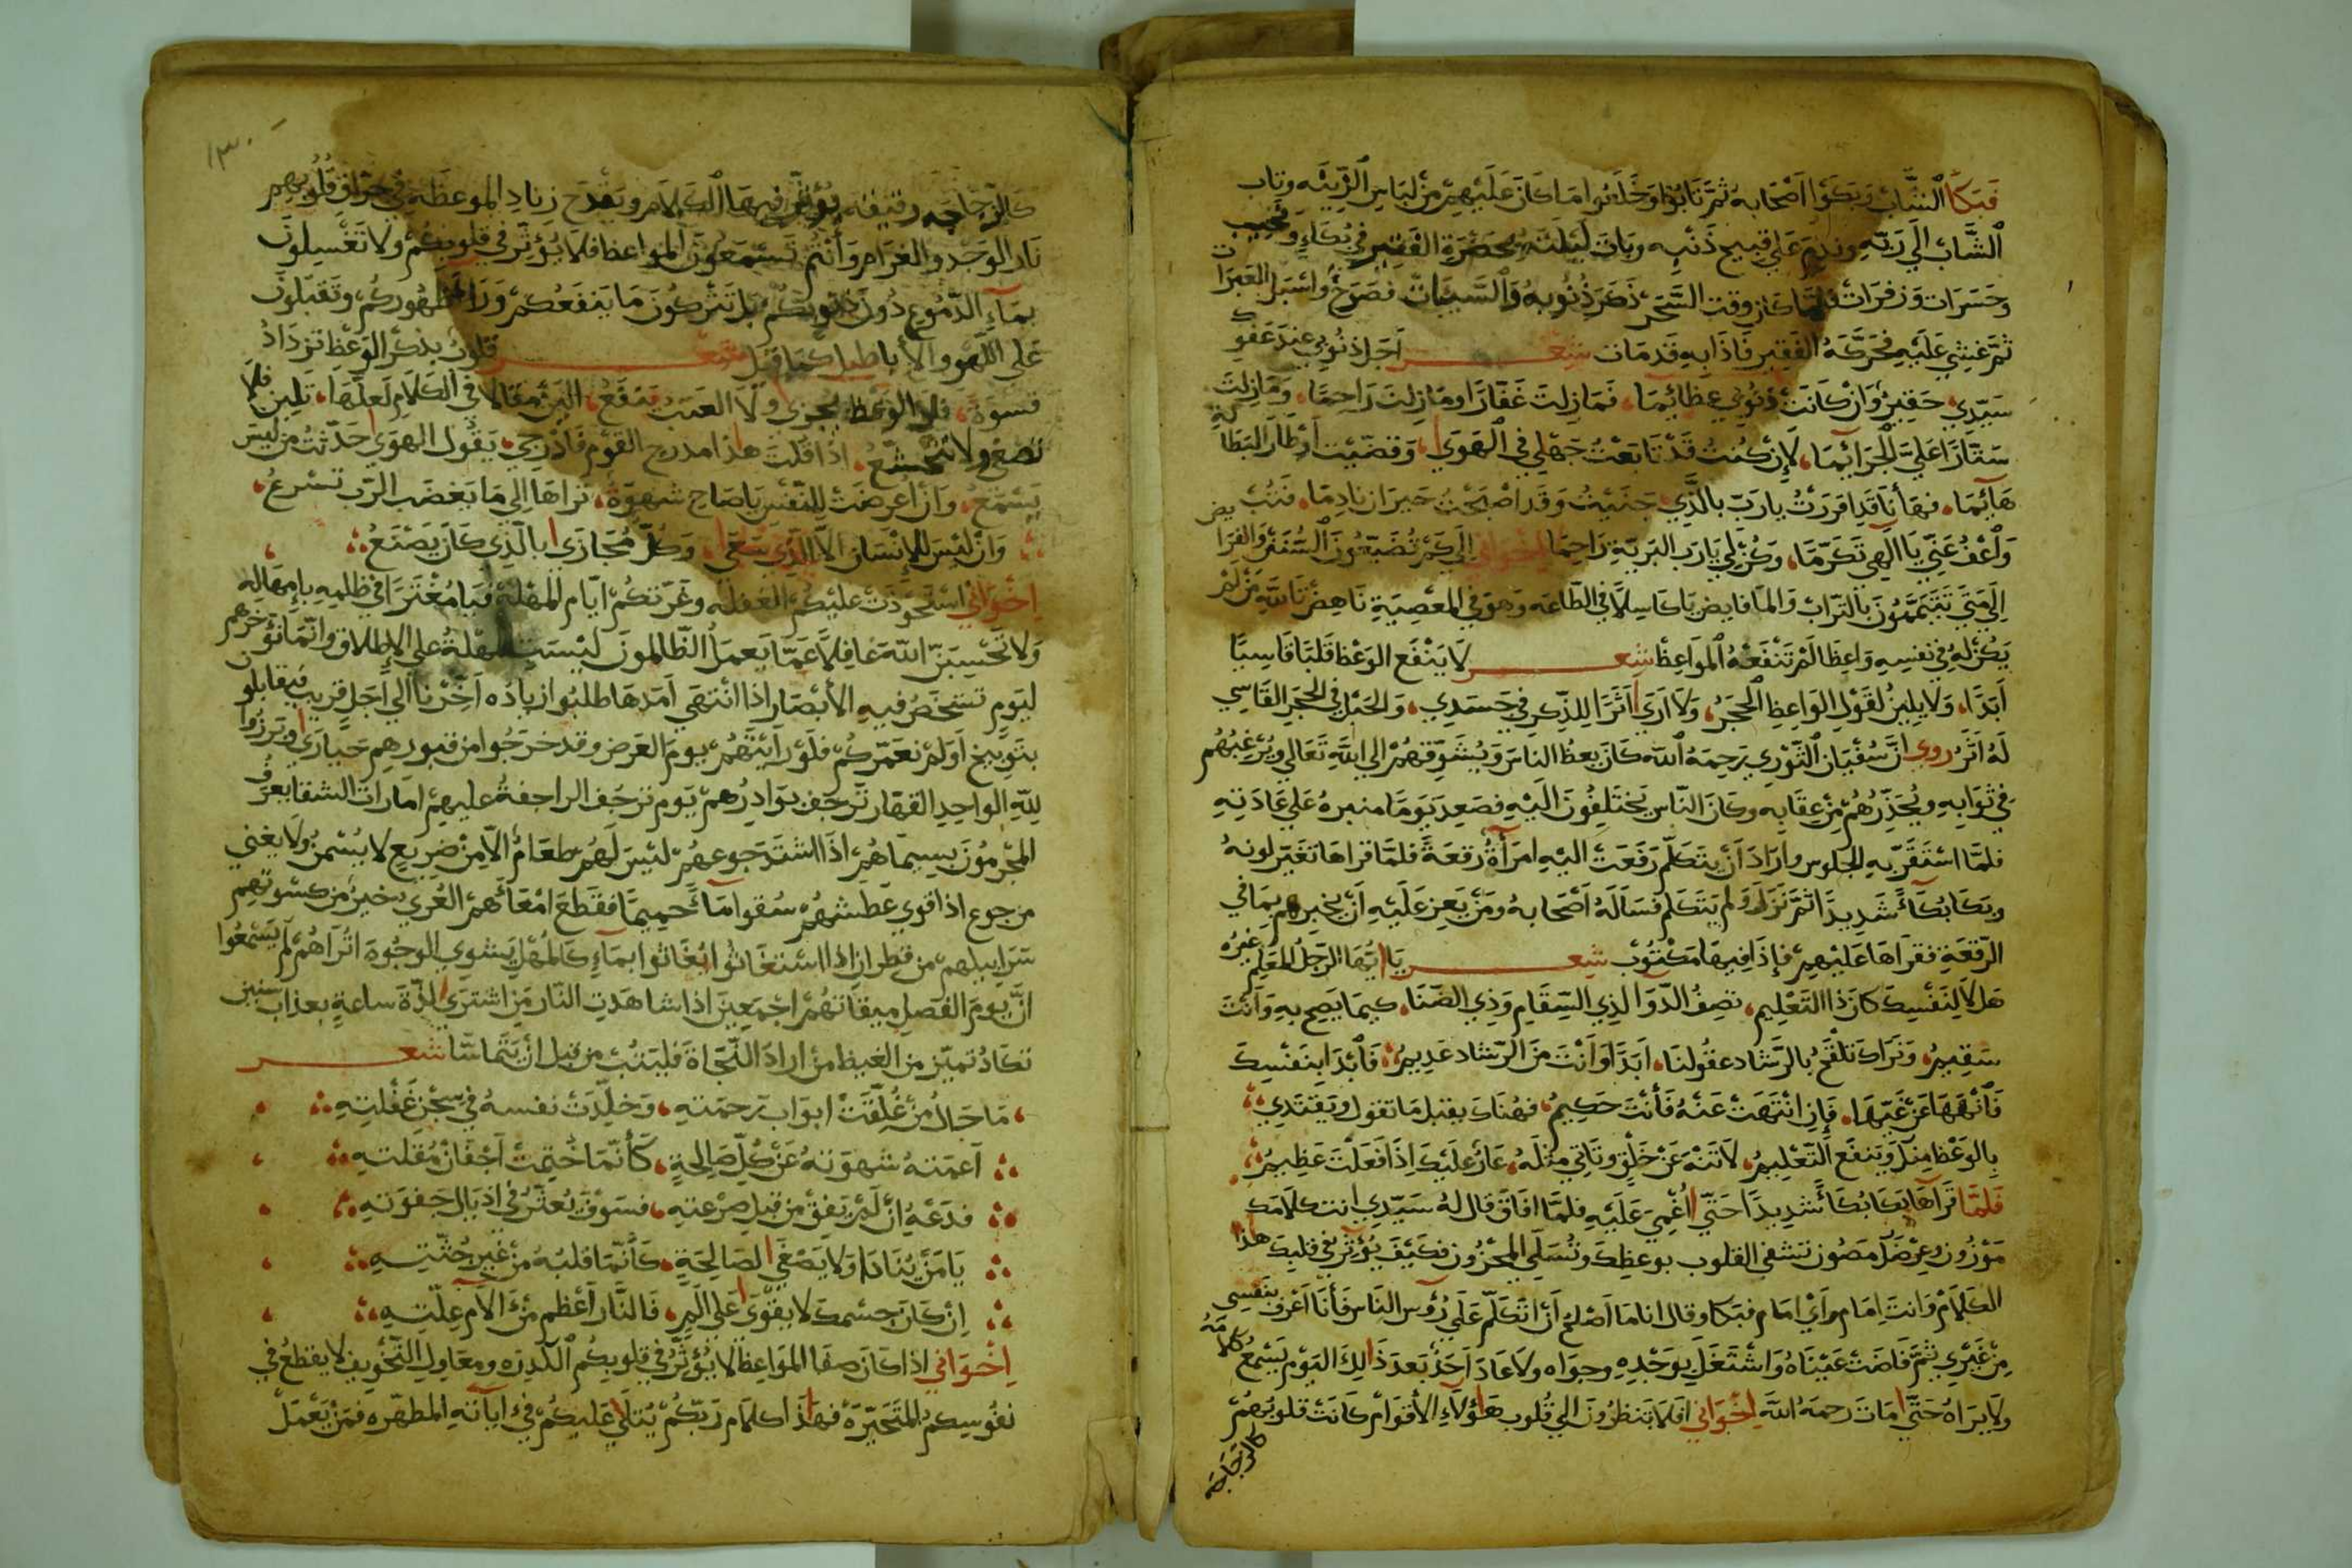 فَبَكَا الشَّابُّ وَبَكَوْا اَصْحَابه ثُمَّ تَابُوا وَخَلَعُوا مَا كَانَ عَلَيْهِمْ مِنْ لِبَاسِ الزِّينَه وتاب
الشَّابُ الَى رَبّهِ وندِمَ عَلى قبيح ذَنْبِه وبَاتَ لَيْلَتَهُ بحَضْرَةِ الفَقِير في بُكَاءٍ وَنحِيبٍ
وحَسَرَات وَزفرَات فلمَّا كان وقت السَّحَر ذَكَرَ ذُنُوبهُ وَالسَّيئَات فصَرَخ وَاسْبَل العَبَرَات
ثمَّ غشي عَلَيهِ فحَرَّكَهُ الفَقِير فَاذَا بِهِ قَد مَات شعر اَجَل ذنُوبي عندَ عَفوِك
سَيّدِي حَقِيرٌ وَانْ كَانَتْ ذنوُبي عظَائِمَا، فَمَا زِلتَ غَفّارًا وَمَا زِلتَ رَاحمًا، وَمَا زِلتَ
سَتّارًا عَلَيَّ الجَرَائِمَا، لإنْ كُنتُ قَدْ تَابَعْتُ جَهْلي في الهَوَى، وَقضَيْت أوْطَار البَطَالَةِ
هَائِمَا، فهَا أنَا قَد اقرَرْتُ يارَبّ بالذَّي جَنَيْتُ وَقَد اصْبَحْتُ حَيرَان نادِمَا، فَتُبْ
وَاعْفُ عَنّي يَا الهِي تَكَرُّمَا، وَكُنْ لِي يَارَبّ البَريّةِ رَاحِمَا اخوَاني الَى كَمْ تُضَيّعُونَ السُّنَنَ والفَرَايض
اِلَى مَتَى تَتَيَمَّمُونَ بِالتّرَابِ وَالمَا فايض يَا كَاسِلاً في الطّاعَه وَهوَ في المعْصِيَةِ نَاهِضْ تَاللهِ مَنْ لَمْ
يَكُنْ لَهُ في نفسِهِ وَاعِظًا لَمْ تَنْفَعْهُ المَواعِظ شعر لَا يَنْفَع الوَعْظ قَلبًا قَاسِيًا
اَبَدًا، وَلَا يلينُ لقَوْلِ الوَاعِظِ الحَجَرُ، وَلَا اَرَى اَثَرًا للذّكرِ في جَسَدِي، وَالحَبْل في الحجَر القَاسِي
لَهُ اَثَرُ روي انَّ سُفْيَان الثَّوْري رَحِمَهُ الله كَانَ يعظُ الناسَ وَيُشَوّقهُمْ الى اللهِ تَعَالى وَيُرَغّبُهُم
في ثَوَابِهِ وَيُحَذّرُهُمْ مِنْ عِقَابِه وكَانَ النّاس يَختَلِفُونَ الَيْهِ فصَعِدَ يَوْمًا منبرهُ عَلى عَادَتِهِ
فلمَّا اسْتَقَرَّ بهِ الجلوس وَارَادَ اَنْ يتَكَلّم رَفَعَتْ اليْهِ امرَأةٌ رُقعَةً فلمَّا قراهَا تغَيّر لونهُ
وبكَا بُكَاءً شَدِيدًا ثمَّ نَزَلَ وَلم يَتَكَلم فسَالَهُ اَصْحَابهُ ومَنْ يَعِز عَلَيهِ اَنْ يخبرهم بمَا في
الرّقعَةِ فقراهَا عَليْهِمْ فإذَا فِيهَا مَكتُوبٌ شعر يَا ايّهَا الرّجُلُ المعَلّم غيْرَهُ
هَلّا لِنَفْسِكَ كَانَ ذَا التَعْلِيم، تصِفُ الدّوَا لِذِي السّقَامِ وَذِي الضّنَا، كيمَا يَصِح بهِ وَاَنتَ
سَقِيمُ، وَنَرَاكَ تلْقحُ بالرّشَاد عقُولنَا، ابَدًا وَاَنْتَ مِنَ الرّشاد عَدِيمُ، فَابْدَا بِنَفْسِكَ
فَانْهَهَا عَنْ غَيّهَا، فَإنِ انْتَهَتْ عَنهُ فَأنتَ حَكِيمُ، فهُنَاكَ يقبل مَا تقول وَيَقتَدِي،
بِالوَعْظِ مِنكَ وَيَنفَع التّعْلِيمُ، لَا تَنْهَ عَنْ خُلُقٍ وتَاتِي مِثلَهُ، عَارٌ عَلَيْكَ اِذَا فَعَلتَ عَظِيمُ
فَلَمَّا قرَاهَا بَكَا بُكَاءً شَدِيدًا حَتّى اُغْمِيَ عَلَيهِ فلمَّا افَاقَ قال لَهُ سَيّدِي انت كلَامك
مَوْزُون وعِرْضَكَ مَصُون تشفي القلوب بوعظِكَ وتُسَلّي المحْزُون فكَيْفَ يُؤثرُ في قلبِكَ هذَا
الكَلَامْ وَانتَ اِمَام وَايّ امَام فبَكَا وقال انا مَا اصْلحُ اَنْ اتَكَلّم عَلَى رُؤس النَاس فَأنَا اَعْرف بنَفْسِي
مِنْ غَيْرِي ثمَّ فَاضَتْ عَيْنَاهُ وَاشْتَغَلَ بوَجْدِهِ وجوَاه ولَا عَادَ اَحَدٌ بَعدَ ذَلِكَ اليَوْم يَسْمَعُ كلَامَهُ
وَلَا يرَاهُ حَتّى مَاتَ رَحمَهُ اللهَ اِخوَاني افلَا تَنظرُونَ الى قُلُوب هَؤلَاءِ الأقوَام كَانَتْ قلوبُهُمْ
كالزجَاجَه
١٣٠
كَالزّجَاجَه رقيقه يُؤثّر فيهَا الكَلَام ويَقْدَح زِنادِ الموعظَة في حرَاق قُلُوبِهِم
نَار الوَجْد والغرَام وَأنْتُمْ تَسْمَعُونَ المواعظ فلَا يُؤثّر في قلوبكُمْ ولَا تَغْسِلونَ
بمَاءِ الدّمُوعِ دُونَ ذنوبكُمْ بَل تَتركُونَ مَا يَنفَعُكُمْ وَرَاء ظهُوركُمْ وتَقبلونَ
عَلى اللّهْو والأبَاطيل كمَا قيل شعر قلوبٌ بذكر الوَعْظِ تزدَادُ
قسوَةً، فلا الوَعْظ يجزي ولَا العَتبُ يَنْفَعُ، اليَنُ مقالا في الكَلَامِ لَعَلّهَا، تَلِينُ فلا
تصغ ولَا تتخشَّعُ، اذَا قلت هذَا مدرج القوْم فَادْرجي، يَقُول الهَوَى حَدّثتُ مَنْ لَيسَ
يَسْمَعُ، وَانْ اعرضَتْ للنّفسِ يَاصَاحِ شهْوَةٌ، تراهَا اِلى مَا يَغضَب الرّبّ تسْرعُ،
وَانْ لَيْسَ للإنْسَانِ الّا الّذِي سَعَى، وَكُلّ مُجَازَى بالّذِي كَانَ يَصْنَعُ
اِخوَاني اسْتَحْوَذَتْ عليْكُمْ الغفله وغَرّتكُمْ ايّام المُهْلَة فيَا مُغْتَرًا في ظلمِهِ بإمهَاله
وَلَا تَحْسِبَنّ اللهَ غَافِلاً عَمَّا يَعمَلُ الظّالِمونَ لَيْسَت المهْلَةُ على الإطلَاق وانّمَا نُؤَخّرهم
ليَومٍ تشخَصُ فيهِ الأبْصَار اذَا انْتهَى اَمَدهَا طلَبُوا زيادُه اَخِّرْنا الَى اَجَلٍ قَرِيبٍ فيقَابلون
بتَوبيخ اَوَلَمْ نعَمّركُم فلَوْ رَاَيْتَهُمْ يومَ العَرض وقد خرَجُوا من قبورهِم حَيَارَى وَبَرزُوا
للهِ الوَاحِدِ القهّار تَرجف بوَادِرُهمْ يَوم ترجَف الراجفةُ عليهِمْ امَارات الشقا يعرَفُ
المجْرمُونَ بِسِيمَاهُمْ اذَا اشتَدّ جوعهُمْ لَيْسَ لَهُمْ طعَامٌ الّا مِنْ ضَرِيعٍ لَا يُسْمنُ ولَا يغني
من جوع اذا قوي عَطشهُمْ سُقوا مَاءً حَمِيمًا فقَطعَ امْعَاءَهمْ العُرْي خيرٌ من كسْوتهم
سَرَابيلهمْ من قطرانٍ اذا اسْتغَاثُوا يُغَاثوا بمَاءٍ كَالمُهْلِ يَشوي الوجُوهَ اتُراهُمْ لَم يَسْمَعُوا
انَّ يومَ الفَصلِ ميقاتهُمْ اجْمَعِينَ اذا شاهَدتِ النّار مَنِ اشتَرَى لذّةَ ساعةٍ بعذاب سنين
تكَادُ تميّز من الغيظ منْ ارادَ النّجَاة فليَتُبْ من قبل انْ يَتَماسّا شعر
مَا حَالُ مَنْ غُلِّقَتْ ابوَاب رَحمَتهِ، وَخلّدَتْ نفسهُ في سِجْنِ غَفْلتِهِ
اَعمَتهُ شهوَتهُ عَنْ كُلّ صَالِحةٍ، كَأنّمَا خُتِمَتْ اَجْفَانْ مُقلتهِ
فدَعْهُ اِنْ لَمْ يَفِقْ من قبل صَرْعتهِ، فسَوْفَ يَعثَرُ في اذيَالِ جَفوَتهِ
يَا مَنْ يُنَادَا وَلَا يَصْغَى لصَالِحَةٍ، كَأنّمَا قلبُهُ مِنْ غَيرِ جُثّتِهِ
اِنْ كَانَ جسْمكَ لَا يقوَى عَلى الَمٍ، فَالنّار اَعْظم مِنْ الآم عِلّتِهِ
اِخْوَاني اذا كَانَ صفَا المَوَاعِظ لَا يُؤثّرُ في قلوبِكُم الكَدِرَه ومعَاوِل التّخْويف لَا يقطَعُ في
نفوسِكم المُتَحَيّرَة فهذَا كَلَام رَبّكُمْ يُتْلَى عَليكُمْ في ايَاته المطهّره فمَنْ يَعْمَلْ